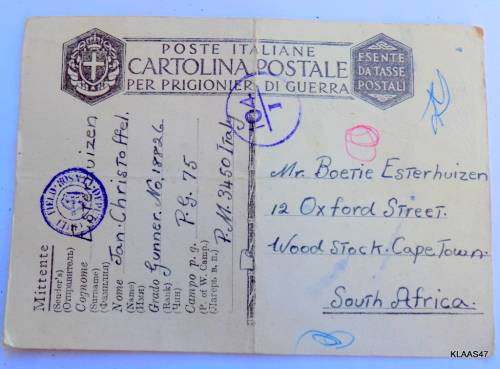 POSTE ITALIANE
CARTOLINA POSTALE
PER PRIGIONIERI DI GUERRA
ESENTE
DA TASSE
POSTALI
Mittente
(Sender's)
(Отправитель)
Cognome
(Surname)
(Фамилия)
Esterhuizen
Nome Jan. Christoffel.
(Name)
(Имя)
Grado Gunner. No.
(Rank)
(Чин)
Campo p. g. P.G. 75
(P. of W. Camp.)
(Лагерь в. п.)
P.M. 3450 Italy
Mr. Boetie Esterhuizen
12 Oxford Street.
Wood stock. Cape Town.
South Africa.
KLAAS47